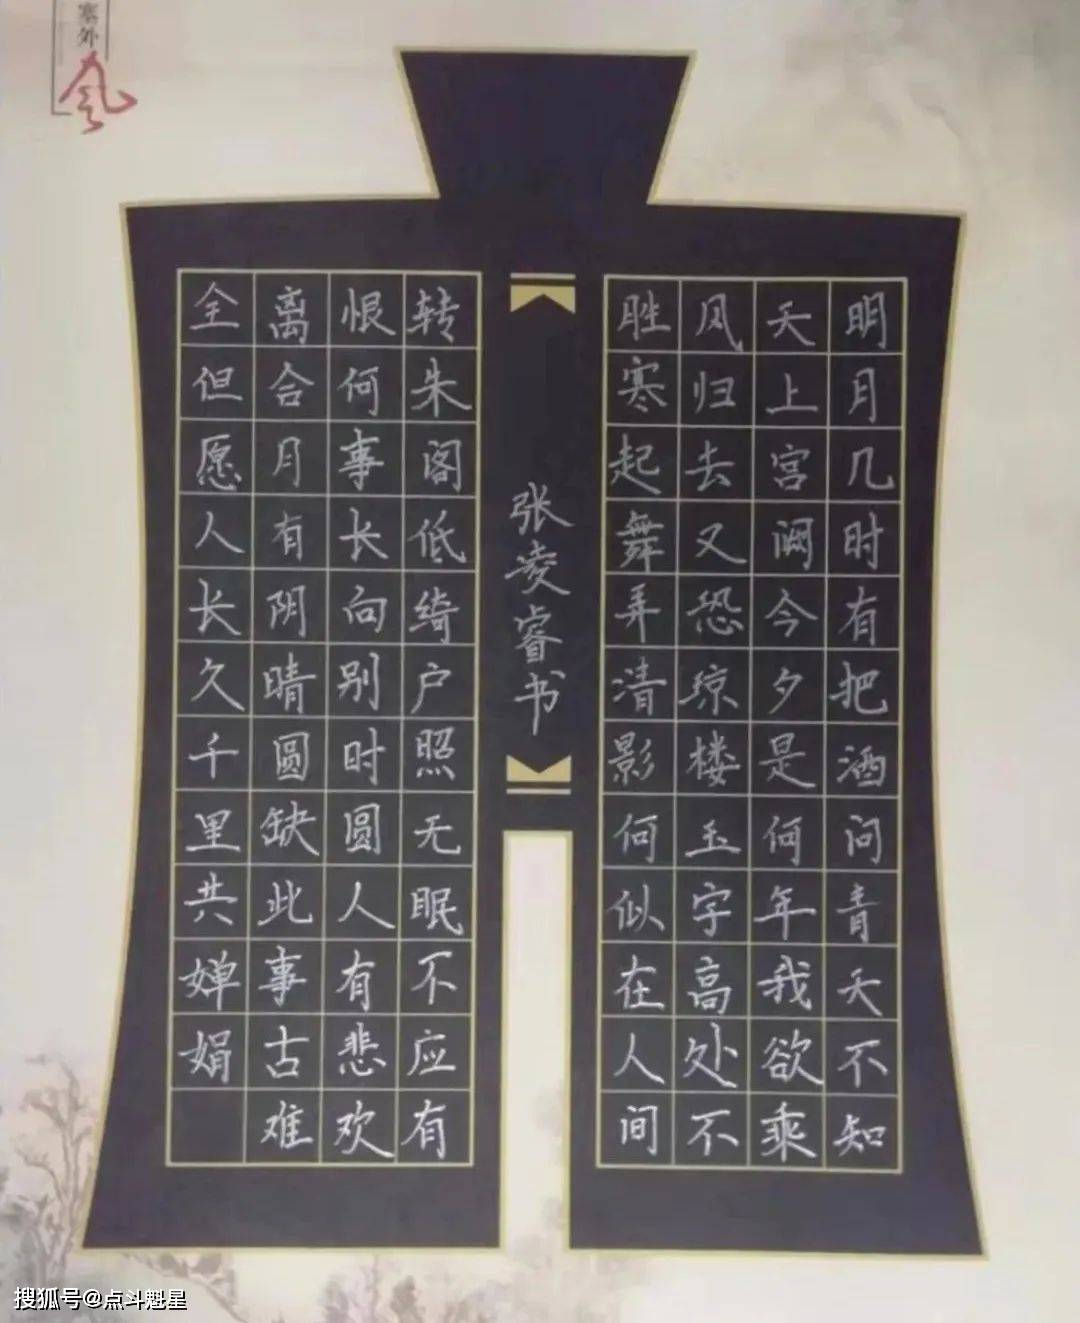 塞外
风
明月几时有把酒问青天不知
天上宫阙今夕是何年我欲乘
风归去又恐琼楼玉宇高处不
胜寒起舞弄清影何似在人间
张凌睿书
转朱阁低绮户照无眠不应有
恨何事长向别时圆人有悲欢
离合月有阴晴圆缺此事古难
全但愿人长久千里共婵娟
搜狐号@点斗魁星